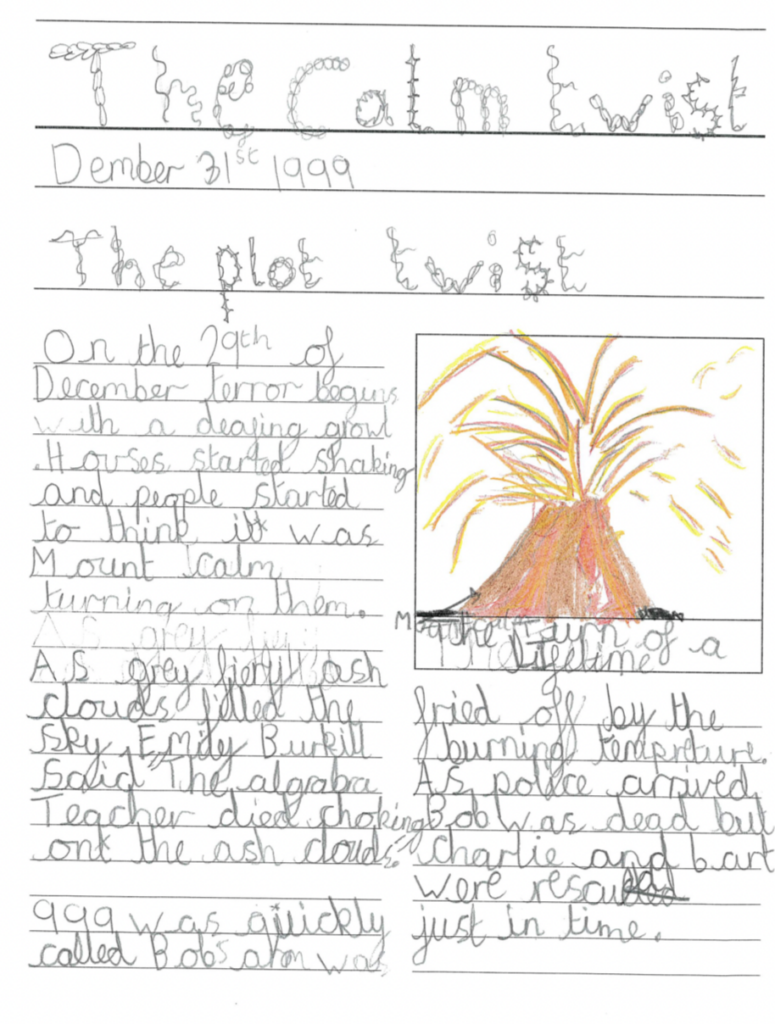 The Calm twist
Dember 31st 1999
The plot twist
On the 29th of
December terror begins
with a deafing growl
Houses started shaking
and people started
to think it was
Mount Calm
turning on them.
As grey fiery ash
clouds filled the
Sky, Emily Burkill
Said "The algrabra
Teacher died choking
ont the ash clouds."
999 was quickly
called Bob's arm was
the turn of a
lifetime
fried off by the
burning tempreture.
As police arrived
Bob was dead but
charlie and bart
were rescued
just in time.